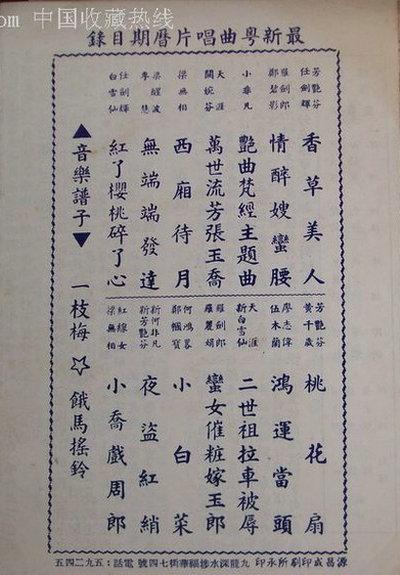 om 中国收藏热线
最新粵曲唱片曆期目錄
芳艷芬
任劍輝
香草美人
羅劍郎
鄭碧影
情醉嫂蠻腰
艷曲梵經主題曲
天涯
關婉芬
萬世流芳張玉喬
梁無相
西廂待月
梁醒波
李慧
無端端發達
任劍輝
白雪仙
紅了櫻桃碎了心
芳艷芬
黃千歲
桃花扇
廖志偉
伍木蘭
鴻運當頭
天涯
新白雪仙
二世祖拉車被辱
羅劍郎
羅麗娟
蠻女催粧嫁玉郎
鄭幗寶
小白菜
新何非凡
新芳艷芬
夜盜紅綃
紅線女
梁無相
小喬戲周郎
▲音樂譜子▼ 一枝梅 ☆ 餓馬搖鈴
源昌成印刷所承印 九龍深水埗福華街七四號 電話:五九二四五